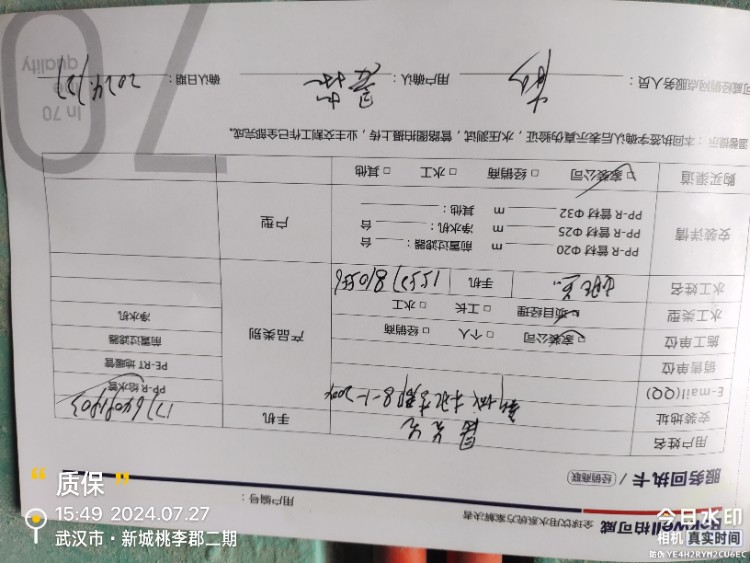 全球饮用水系统方案解决者
用户编号：
服务回执卡 / 经销商联
用户姓名 手机
安装地址 新城桃李郡8-1-2004
E-mail(QQ)
销售单位
施工单位 家装公司 □ 个人 □ 经销商
水工类型 项目经理 □ 工长 □ 水工
水工姓名 手机
产品类别
PP-R 给水管
PE-RT 地暖管
前置过滤器
净水机
安装详情 户型
PP-R 管材 Φ20 m 前置过滤器： 台
PP-R 管材 Φ25 m 净水机： 台
PP-R 管材 Φ32 m 其他：
购买渠道 □ 家装公司 □ 经销商 □ 水工 □ 其他
温馨提示：本回执签字确认后表示真伪验证，水压测试，管路图拍摄上传，业主交割工作已全部完成。
柏可威经销网点服务人员： 用户确认： 确认日期：
70
In 70
quality
质保
15:49 2024.07.27
武汉市·新城桃李郡二期
今日水印
相机 真实时间
防伪 YE4H2RYM2CU6EC